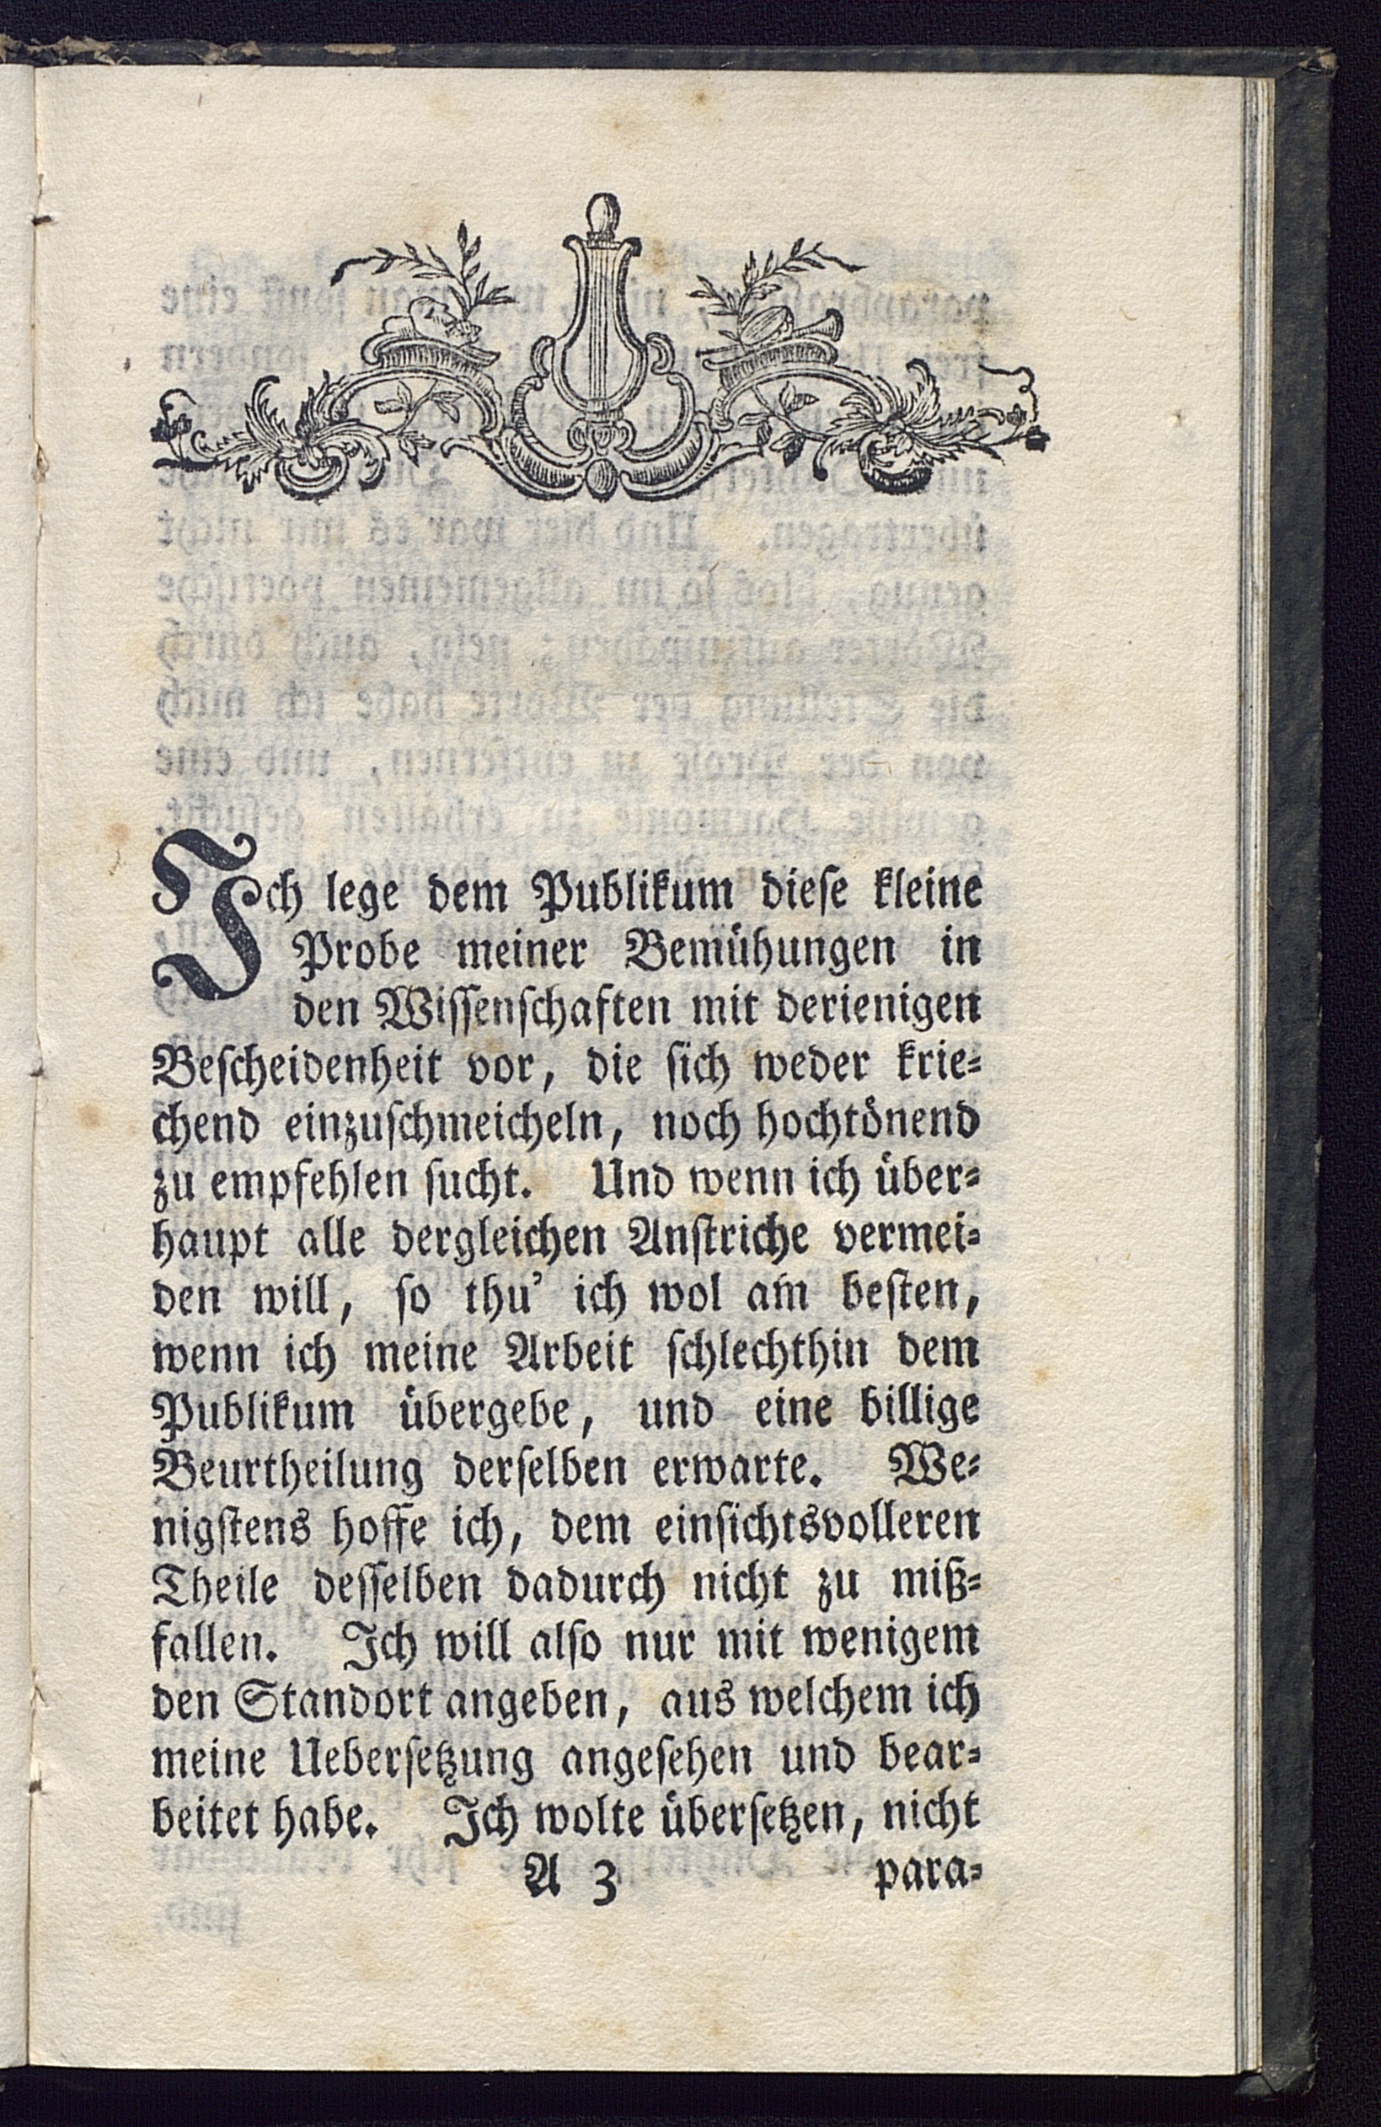 Ich lege dem Publikum dieſe kleine
Probe meiner Bemühungen in
den Wiſſenſchaften mit derienigen
Beſcheidenheit vor, die ſich weder krie⸗
chend einzuſchmeicheln, noch hochtönend
zu empfehlen ſucht. Und wenn ich über⸗
haupt alle dergleichen Anſtriche vermei⸗
den will, ſo thu' ich wol am beſten,
wenn ich meine Arbeit ſchlechthin dem
Publikum übergebe, und eine billige
Beurtheilung derſelben erwarte. We⸗
nigſtens hoffe ich, dem einſichtsvolleren
Theile deſſelben dadurch nicht zu miß⸗
fallen. Ich will alſo nur mit wenigem
den Standort angeben, aus welchem ich
meine Ueberſetzung angeſehen und bear⸗
beitet habe. Ich wolte überſetzen, nicht
A 3 para⸗